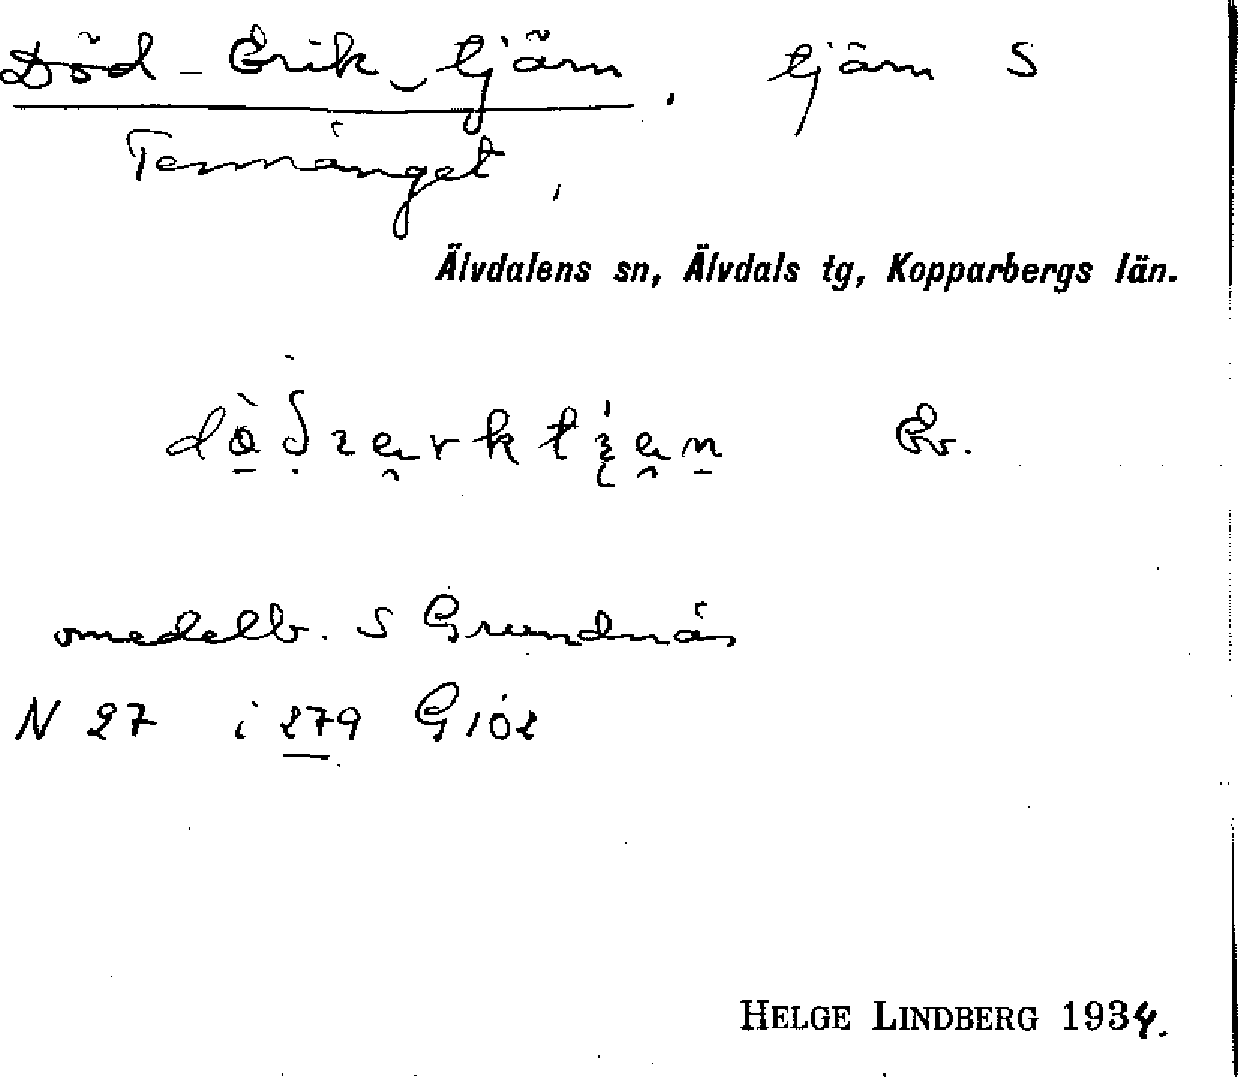 Död-Erik-tjärn, tjärn S
Tennänget,
Älvdalens sn, Älvdals tg, Kopparbergs län.
Ev.
omedelb. S Grundnäs
N 27 i 279 G 102
HELGE LINDBERG 1934.